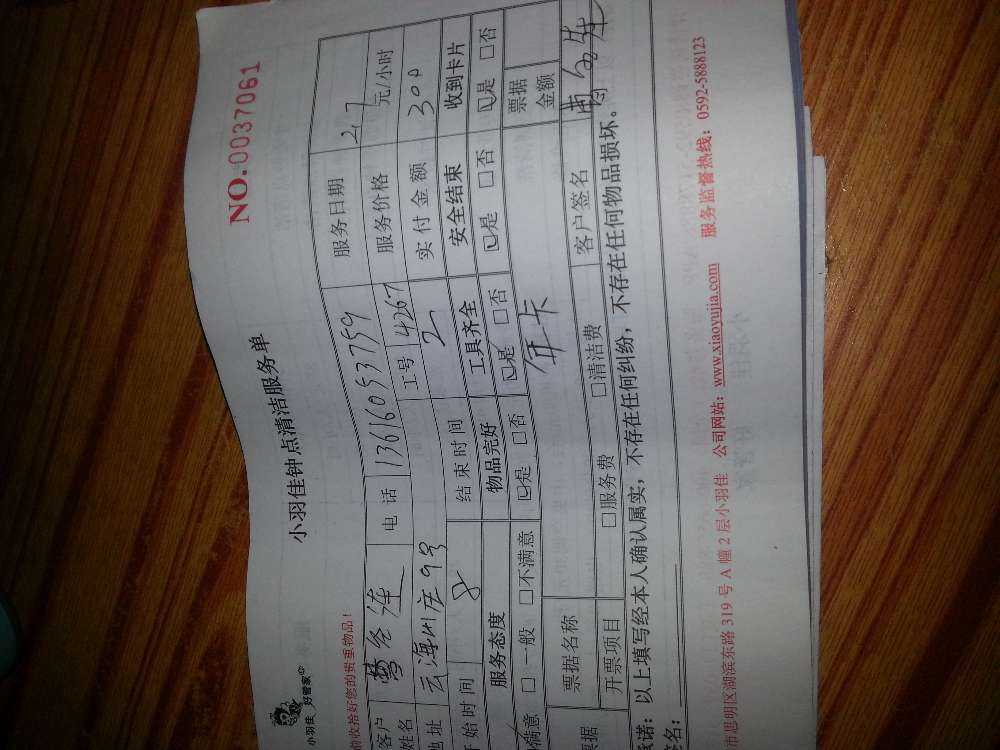 小羽佳 好管家
NO.0037061
小羽佳钟点清洁服务单
前收拾好您的贵重物品!
客户姓名 电话 13616053759 服务日期 27
地址 云海山庄9号 工号 4267 服务价格 元/小时
开始时间 8 结束时间 2 实付金额 300
服务态度 物品完好 工具齐全 安全结束 收到卡片
满意 □一般 □不满意 □是 □否 □是 □否 □是 □否 □是 □否
年卡
票据 票据名称 票据金额
开票项目 □服务费 □清洁费 客户签名
承诺:以上填写经本人确认属实,不存在任何纠纷,不存在任何物品损坏。
签名:
市思明区湖滨东路 319 号 A 幢 2 层小羽佳 公司网站:www.xiaoyujia.com 服务监督热线:0592-5888123